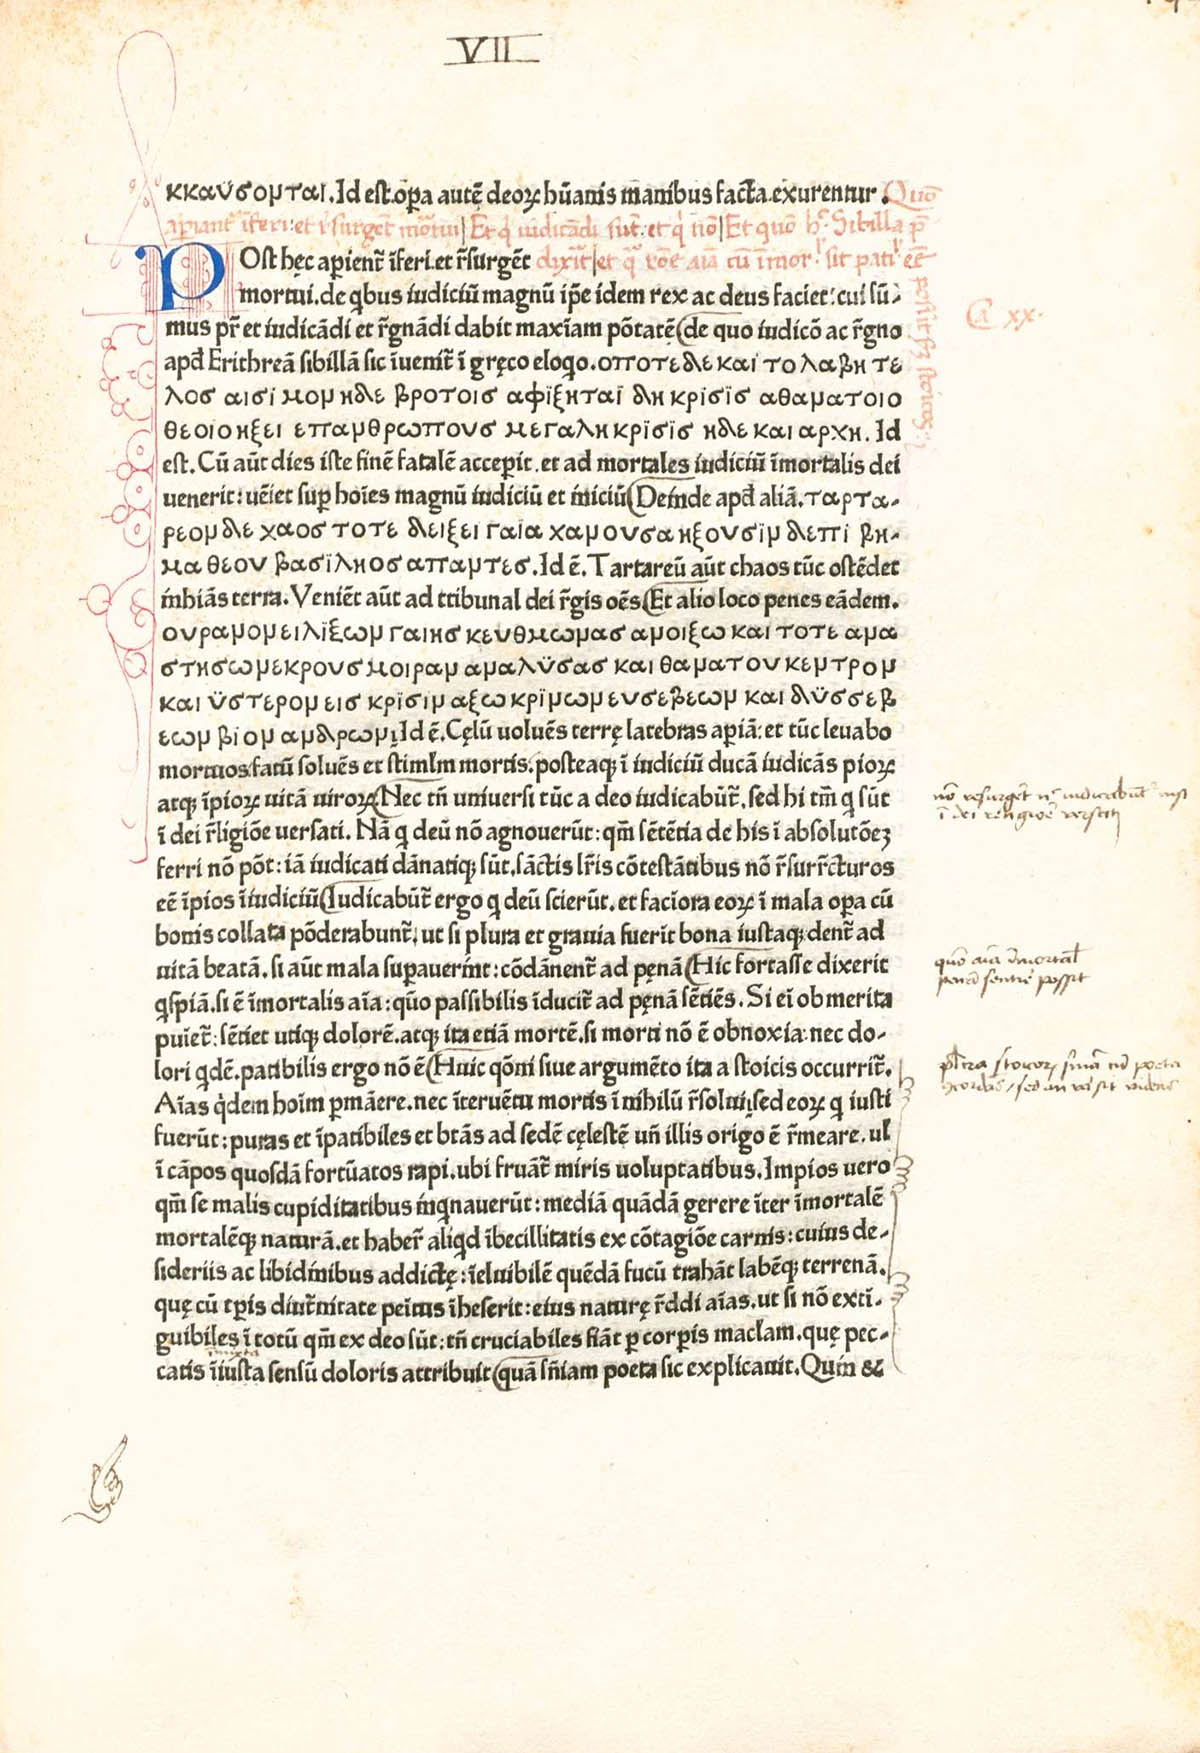 VII
κκαϋσομται. Id est. oꝑa autē deoꝝ hūanis manibus facta exurentur. Quō
aperiant̃ īferi: et r̃surgēt mortui| Et q̇ iudicādi sūt: et q̇ nō| Et quō
POst hęc apient̃ īferi. et r̃surgēt dixit| et
mortui. de qbus iudiciū magnū iꝑe idem rex ac deus faciet: cui sū-
Ca xx.
mus pr̃ et iudicādi et r̃gnādi dabit maxīam põtatē (de quo iudicō ac r̃gno
apđ Erithreā sibillā sic īvenit̃ ī gręco eloqo. οποτε δε και το λαβη τε
λος αισι μομ ηδε βροτοις αφϊξηται δη κρισϊς αθαματοιο
θεοιο ηξει επαμθρωπους μεγαλη κρϊσϊς ηδε και αρχη. Id
est. Cū aūt dies iste finē fatalē acceperit. et ad mortales iudiciū īmortalis dei
venerit: uēiet suꝑ hoīes magnū iudiciū et iniciū (Deinde apđ aliā. ταρτα-
ρεομ δε χαος τοτε δειξει γαϊα χαμουσα ηξουσϊμ δεπι βη-
μα θεου βασϊληος απαμτες. Id ē. Tartareū aūt chaos tūc ostēdet
inhiās terra. Veniēt aūt ad tribunal dei r̃gis oēs (Et alio loco penes eādem.
ουραμομ ειλϊξωμ γαιης κευθμωμας αμοιξω και τοτε αμα
στησω μεκρους μοιραμ αμαλϋσας και θαματου κεμτρομ
και ϋστερομ εις κρϊσιμ αξω κρϊμωμ ευσεβεωμ και δϋσσεβ
εωμ βιομ αμδρωμ: Id ē. Cęlū uoluēs terrę latebras aperiā: et tūc levabo
mortuos: fatū soluēs et stimlm mortis. posteaqꝫ ī iudiciū ducā iudicās pioꝝ
atqꝫ īpioꝝ uitā uiroꝝ (Nec tñ universi tūc a deo iudicabūt̃. sed hi tm̄ q sūt
nō resurgēt nc̄ iudicabūt nisi
ī dei r̃ligiōe versati. Nā q deū nō agnoverūt: qm̄ sētētia de his ī absolutōeꝫ
ī dei religiōe versati
ferri nō põt: iā iudicati dānatiqꝫ sūt. sāctis lr̃is cōtestātibus nō r̃surr̃cturos
eē īpios ī iudiciū (Iudicabūt̃ ergo q deū scierūt. et faciora eoꝝ ī mala oꝑa cū
bonis collata põderabunt̃: ut si plura et gravia fuerīt bona iustaqꝫ dent̃ ad
quō aīa īmortal
uitā beatā. si aūt mala suꝑaverint: cōdānent̃ ad pęnā (Hic fortasse dixerit
penā sentire possit
qspiā. si ē īmortalis aīa: quō passibilis īducit̃ ad pęnā sētiēs. Si eī ob merita
puīet̃: sētiet utiqꝫ dolorē. atqꝫ ita etiā mortē. si morti nō ē obnoxia: nec do-
lori qdē. patibilis ergo nō ē (Huic qōni sive argumēto ita a stoicis occurrit̃.
Aīas q̇dem hoīm ꝑmāere. nec ītervētu mortis ī nihilū r̃solui: sed eoꝝ q iusti
fuerūt: puras et īpatibiles et btās ad sedē cęlestē uñ illis origo ē r̃meare. ul
ī cāpos quosdā fortūatos rapi. ubi fruāt̃ miris voluptatibus. Impios vero
qm̄ se malis cupiditatibus inqnaverūt: mediā quādā gerere īter īmortalē
mortalēqꝫ naturā. et haber̃ aliqd ībecillitatis ex cōtagiōe carnis: cuius de-
sideriis ac libidinibus addictę: īeluibilē quēdā fucū trahāt labēqꝫ terrenā.
quę cū tꝑis diut̃nitate penitus īheserit: eius naturę r̃ddi aīas. ut si nō extī-
guibiles ī totū qm̄ ex deo sūt: tñ cruciabiles fiāt ꝑ corꝑis maclam. quę pec-
catis īiusta sensū doloris attribuit (quā sñiam poeta sic explicavit. Quin &